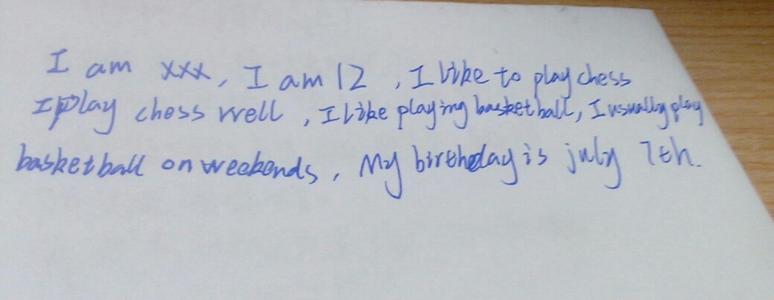 I am xxx, I am 12, I like to play chess
I play chess well, I like playing basketball, I usually play
basketball on weekends, My birthday is july 7th.